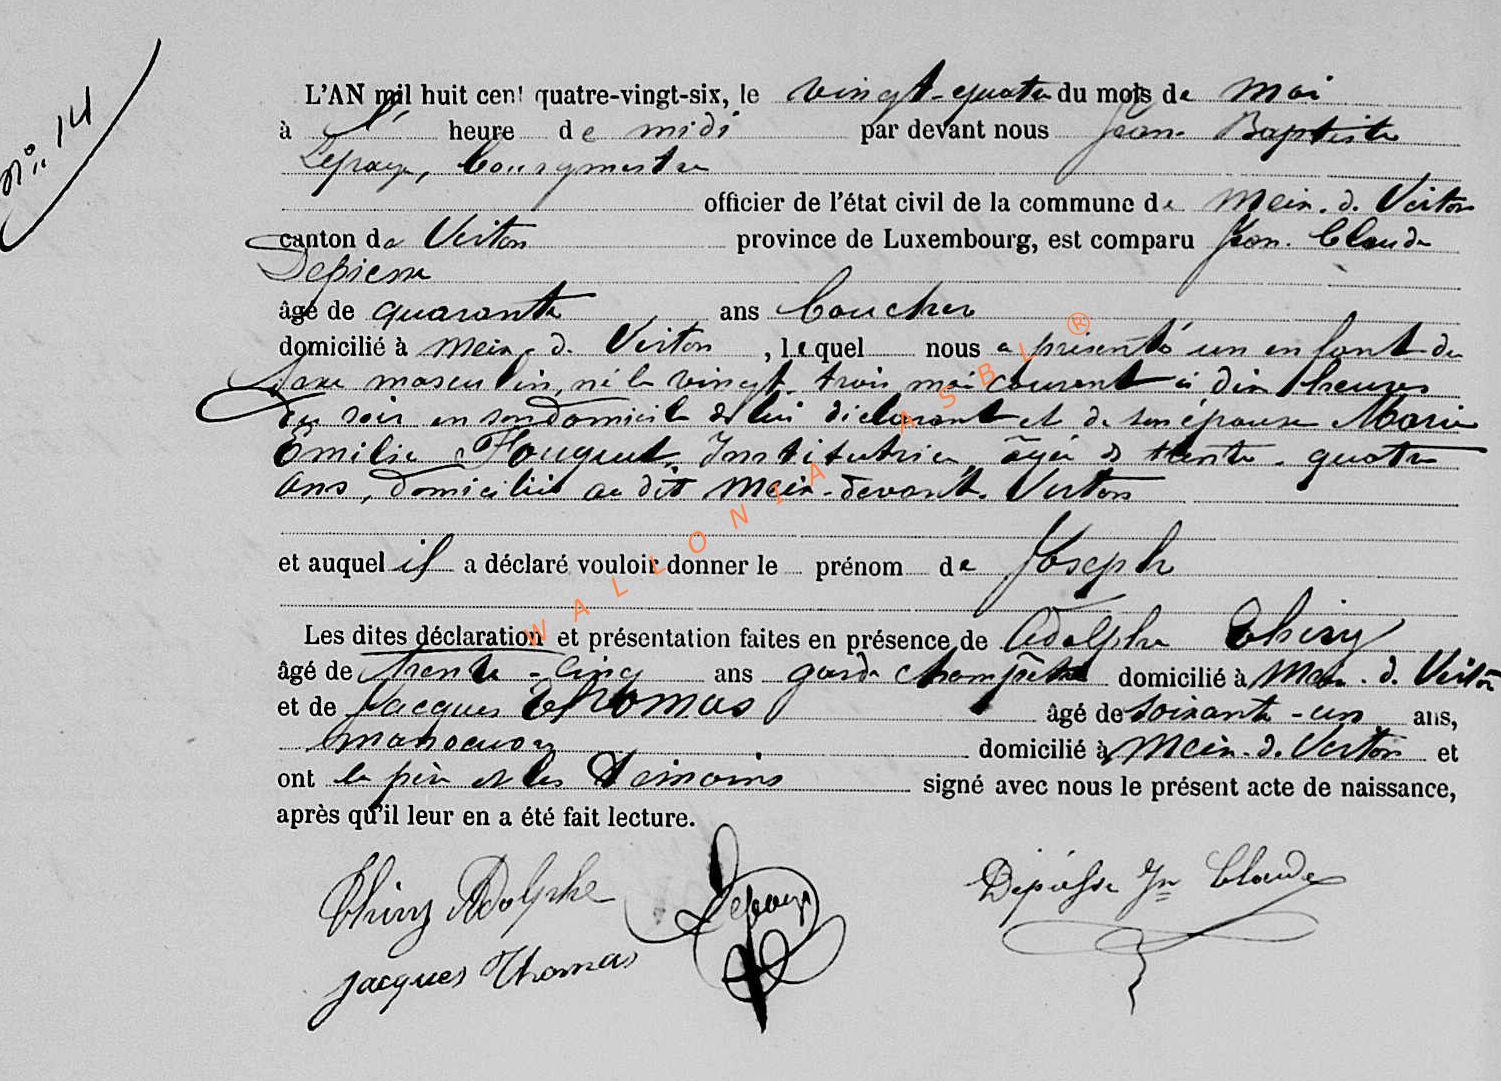 N° 14
L'AN mil huit cent quatre-vingt-six, le vingt-quatre du mois de mai
à l' heure de midi par devant nous Jean Baptiste
Lepage, Bourgmestre
officier de l'état civil de la commune de Meix-d. Virton
canton de Virton province de Luxembourg, est comparu Jean Claude
Depiesse
âgé de quarante ans
domicilié à Meix-d. Virton, lequel nous a présenté un enfant du
sexe masculin, né le vingt-trois mai courant à dix heures
du soir en son domicile de lui déclarant et de son épouse Marie
Emilie Fouquet, Institutrice, âgée de trente-quatre
ans, domiciliée au dit Meix-devant-Virton
et auquel il a déclaré vouloir donner le prénom de Joseph
Les dites déclaration et présentation faites en présence de Adolphe Thiry
âgé de trente-cinq ans garde champêtre domicilié à Meix-d. Virton
et de Jacques Thomas âgé de soixante-un ans,
manoeuvre domicilié à Meix-d. Virton et
ont le père et les témoins signé avec nous le présent acte de naissance,
après qu'il leur en a été fait lecture.
Thiry Adolphe Lepage Depiesse Jn Claude
Jacques Thomas
WALLONIA ASBL ®